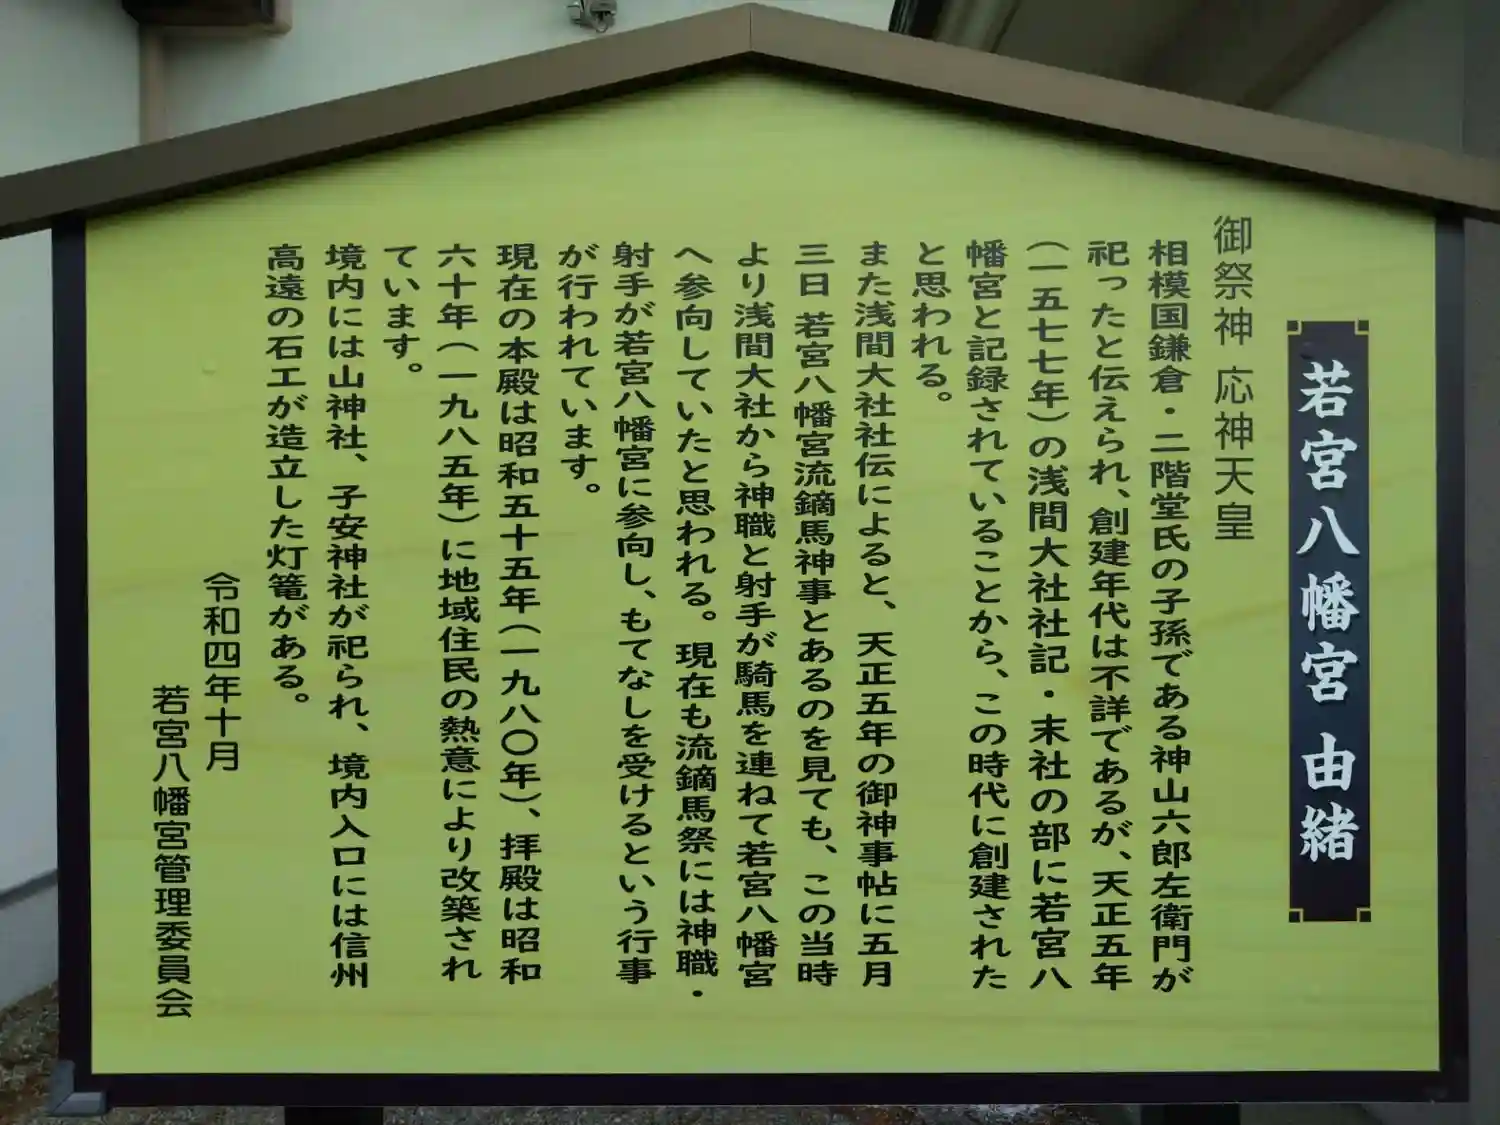 若宮八幡宮 由緒
御祭神 応神天皇
相模国鎌倉・二階堂氏の子孫である神山六郎左衛門が
祀ったと伝えられ、創建年代は不詳であるが、天正五年
(一五七七年)の浅間大社社記・末社の部に若宮八
幡宮と記録されていることから、この時代に創建された
と思われる。
また浅間大社社伝によると、天正五年の御神事帖に五月
三日 若宮八幡宮流鏑馬神事とあるのを見ても、この当時
より浅間大社から神職と射手が騎馬を連ねて若宮八幡宮
へ参向していたと思われる。現在も流鏑馬祭には神職・
射手が若宮八幡宮に参向し、もてなしを受けるという行事
が行われています。
現在の本殿は昭和五十五年(一九八〇年)、拝殿は昭和
六十年(一九八五年)に地域住民の熱意により改築され
ています。
境内には山神社、子安神社が祀られ、境内入口には信州
高遠の石工が造立した灯篭がある。
令和四年十月
若宮八幡宮管理委員会